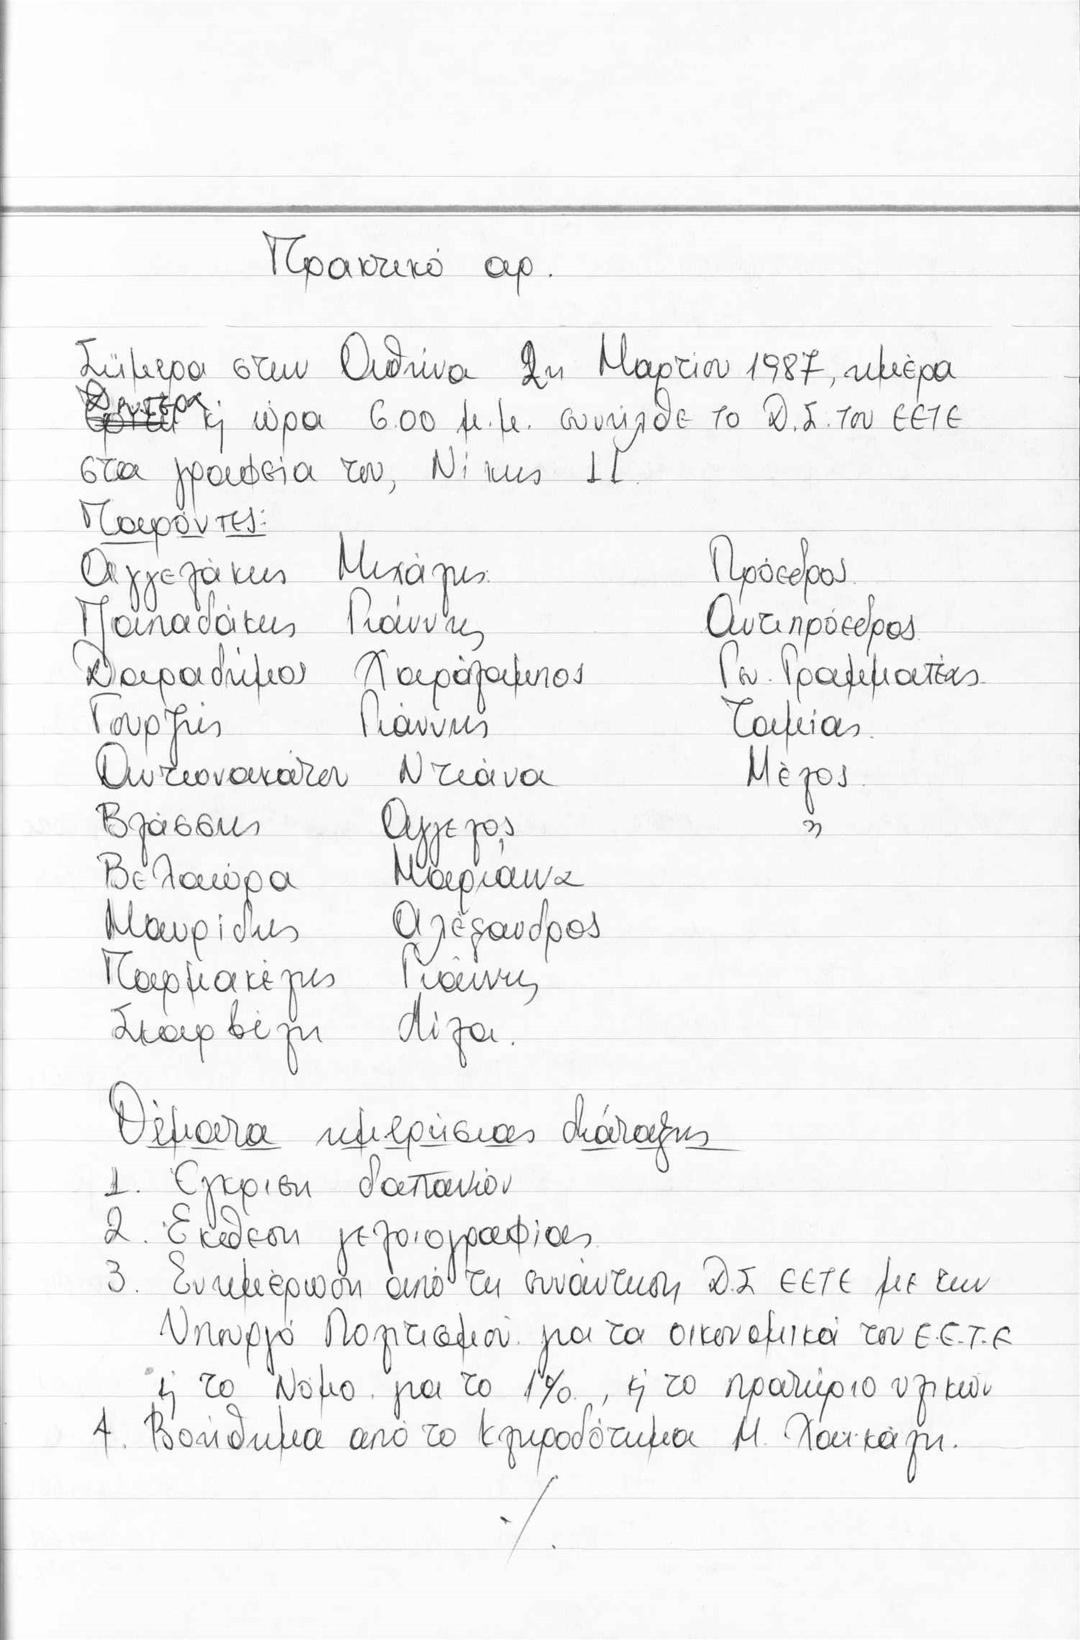 Πρακτικό αρ.
Σήμερα στην Αθήνα 2η Μαρτίου 1987, ημέρα
Δευτέρα κ ώρα 6.00 μ.μ. συνήλθε το Δ.Σ. του ΕΕΤΕ
στα γραφεία του, Νίκης 11.
Παρόντες:
Αγγελάκης Μιχάλης Πρόεδρος.
Παπαδάκης Γιάννης Αντιπρόεδρος
Δαραδήμος Χαράλαμπος Γεν. Γραμματέας
Γουρζής Γιάννης Ταμίας.
Αντωνακάτου Ντιάνα Μέλος.
Βλάσσης Αγγελος "
Βελαώρα Μαριάνα
Μαυρίδης Αλέξανδρος
Παρμακέλης Γιάννης
Σκαρβέλη Λίζα.
Θέματα ημερήσιας διάταξης
1. Εγκριση δαπανών
2. Εκθεση γελοιογραφίας
3. Ενημέρωση από τη συνάντηση Δ.Σ ΕΕΤΕ με την
Υπουργό Πολιτισμού για τα οικονομικά του Ε.Ε.Τ.Ε
κ το Νόμο για το 1%, κ το πρατήριο υλικών
4. Βοήθημα από το κληροδότημα Μ.
./.